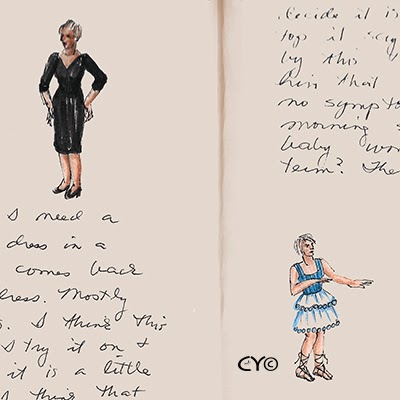 I need a
dress in a
comes back
dress. Mostly
s. I think this
I try it on &
it is a little
I think that
decide it is
by this
him that
no sympto
morning s
baby wor
term? The
CY©